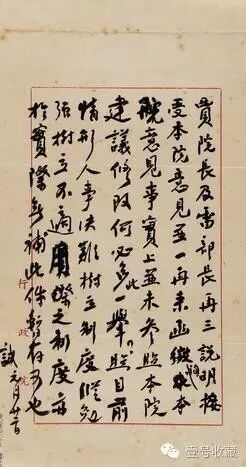 貴院長及雷部長再三說明接
受本院意見並一再來函徵求本
院意見事實上並未參照本院
建議修改何必多此一舉照目前
情形人事決難樹立制度縱勉
強樹立不適用際之制度亦
於實際無補此件暫存可也
誠
行政院
壹号收藏